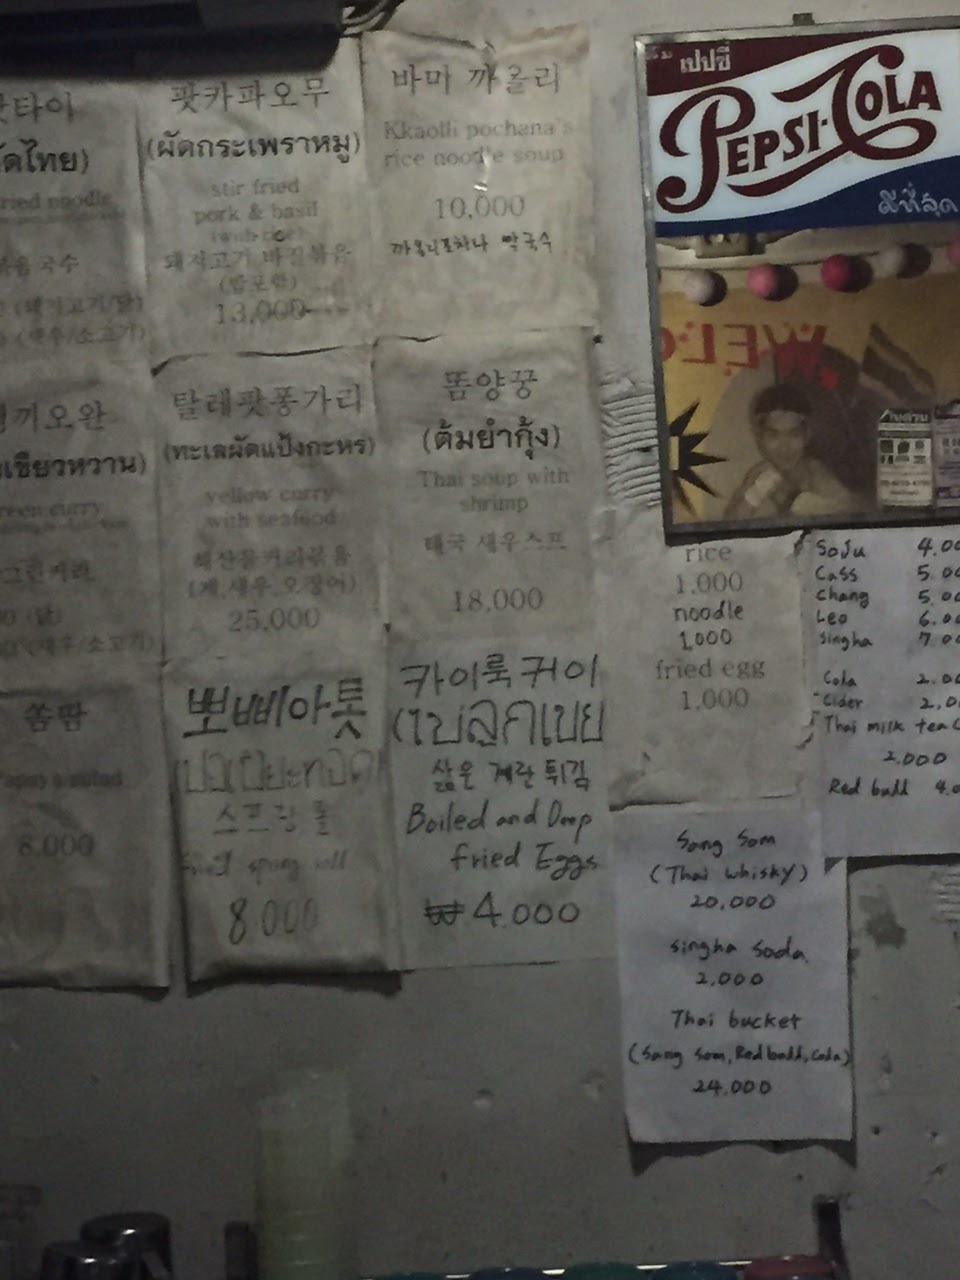 팟타이
ผัดไทย)
fried noodle
볶음 국수
(돼지고기/닭)
(새우/소고기)
팟카파오무
(ผัดกระเพราหมู)
stir fried
pork & basil
(with rice)
돼지고기 바질볶음
(밥포함)
13,000
바마 까올리
Kkaolli pochana's
rice noodle soup
10,000
까올리포차나 쌀국수
เปปซี่
PEPSI-COLA
ดีที่สุด
WEL
끼오완
เขียวหวาน)
green curry
그린커리
(닭)
(새우/소고기)
탈레팟퐁가리
(ทะเลผัดแป้งกะหร)
yellow curry
with seafood
해산물커리볶음
(게,새우,오징어)
25,000
똠양꿍
(ต้มยำกุ้ง)
Thai soup with
shrimp
태국 새우스프
18,000
rice
1,000
noodle
1,000
fried egg
1,000
Soju 4.00
Cass 5.00
Chang 5.00
Leo 6.00
Singha 7.00
Cola 2.00
Cider 2.00
Thai milk tea
2.000
Red bull 4.0
쏨땀
salad
8.000
뽀삐아톳
스프링 롤
Fried spring roll
8.000
카이룩커이
(ไข่ลูกเขย
삶은 계란 튀김
Boiled and Deep
fried Eggs
₩4.000
Sang Som
(Thai whisky)
20,000
singha soda
2,000
Thai bucket
(Sang Som, Red bull, Cola)
24.000